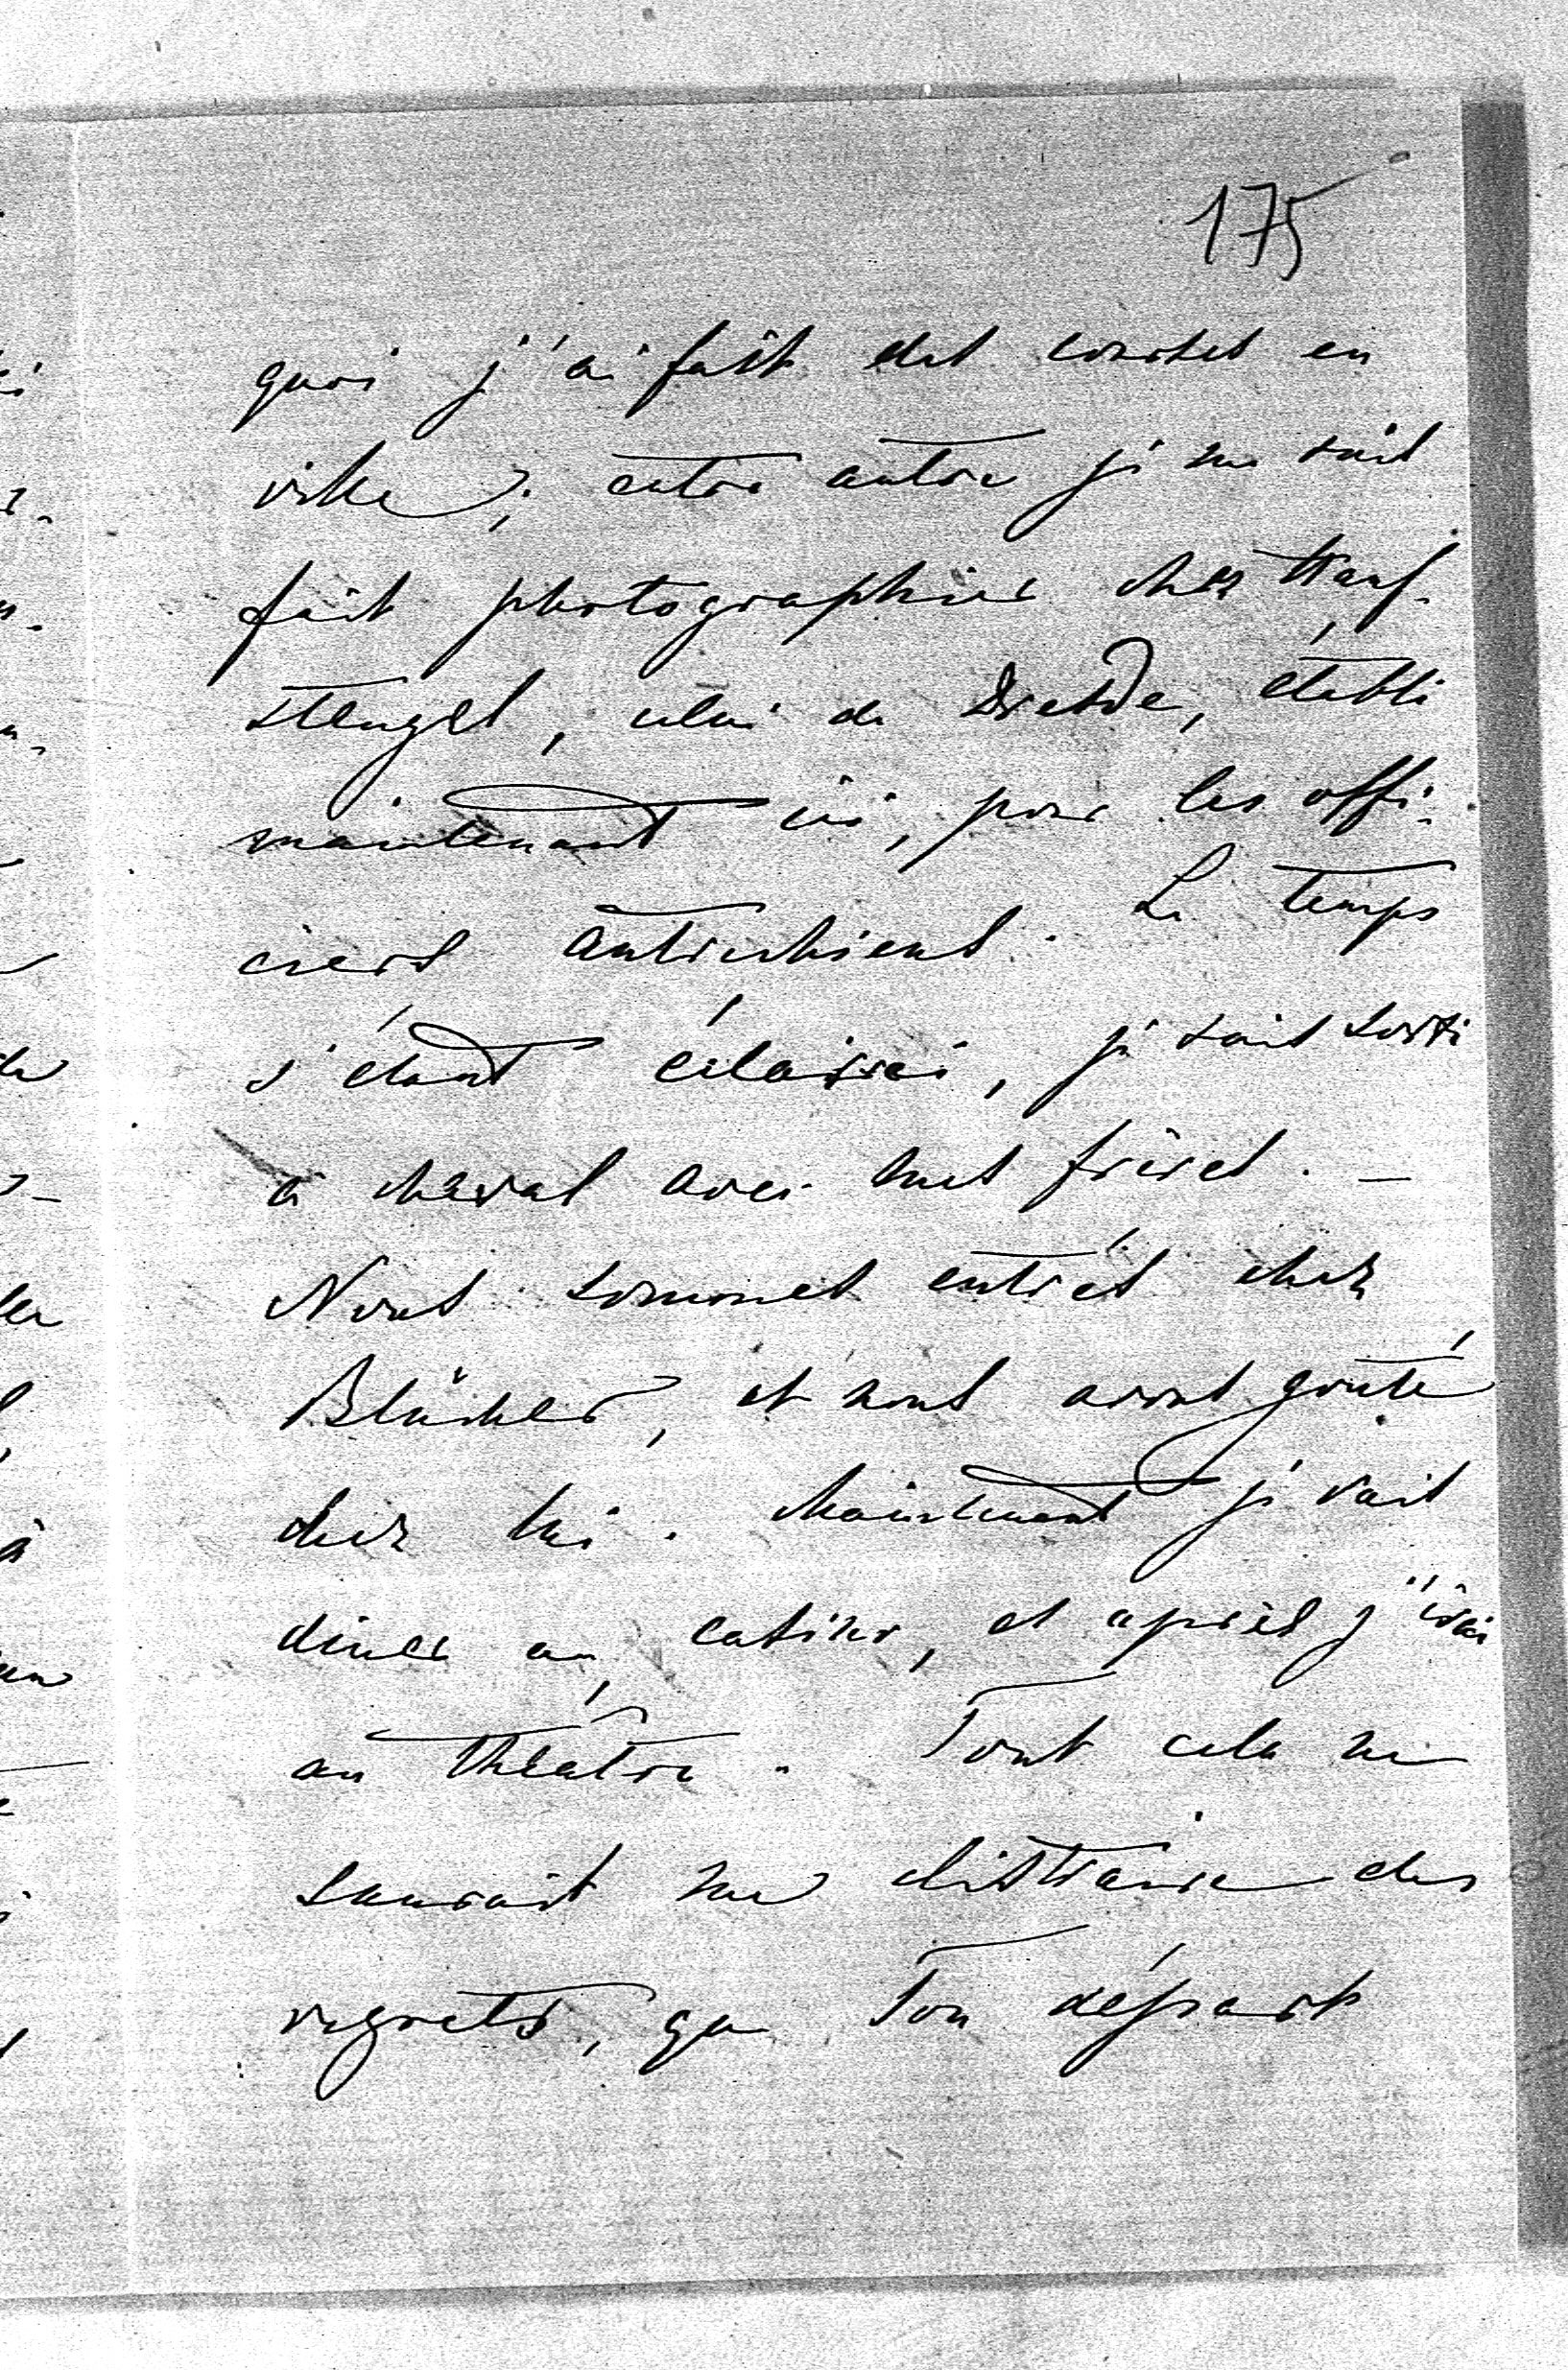 175
quoi j'ai fait des courses en
ville; entre autre je me suis
fait photographier chez Hanf-
stengel, celui de Dresde, établi
maintenant ici, pour les offi-
ciers autrichiens. Le temps
s'étant éclairci, je suis sorti
à cheval avec mes frères. —
Nous sommes entrés chez
Blücher, et nous avons goûté
chez lui. Maintenant je vais
diner au casino, et après j'irai
au théâtre. Tout cela ne
saurait me distraire des
regrets, que Ton départ